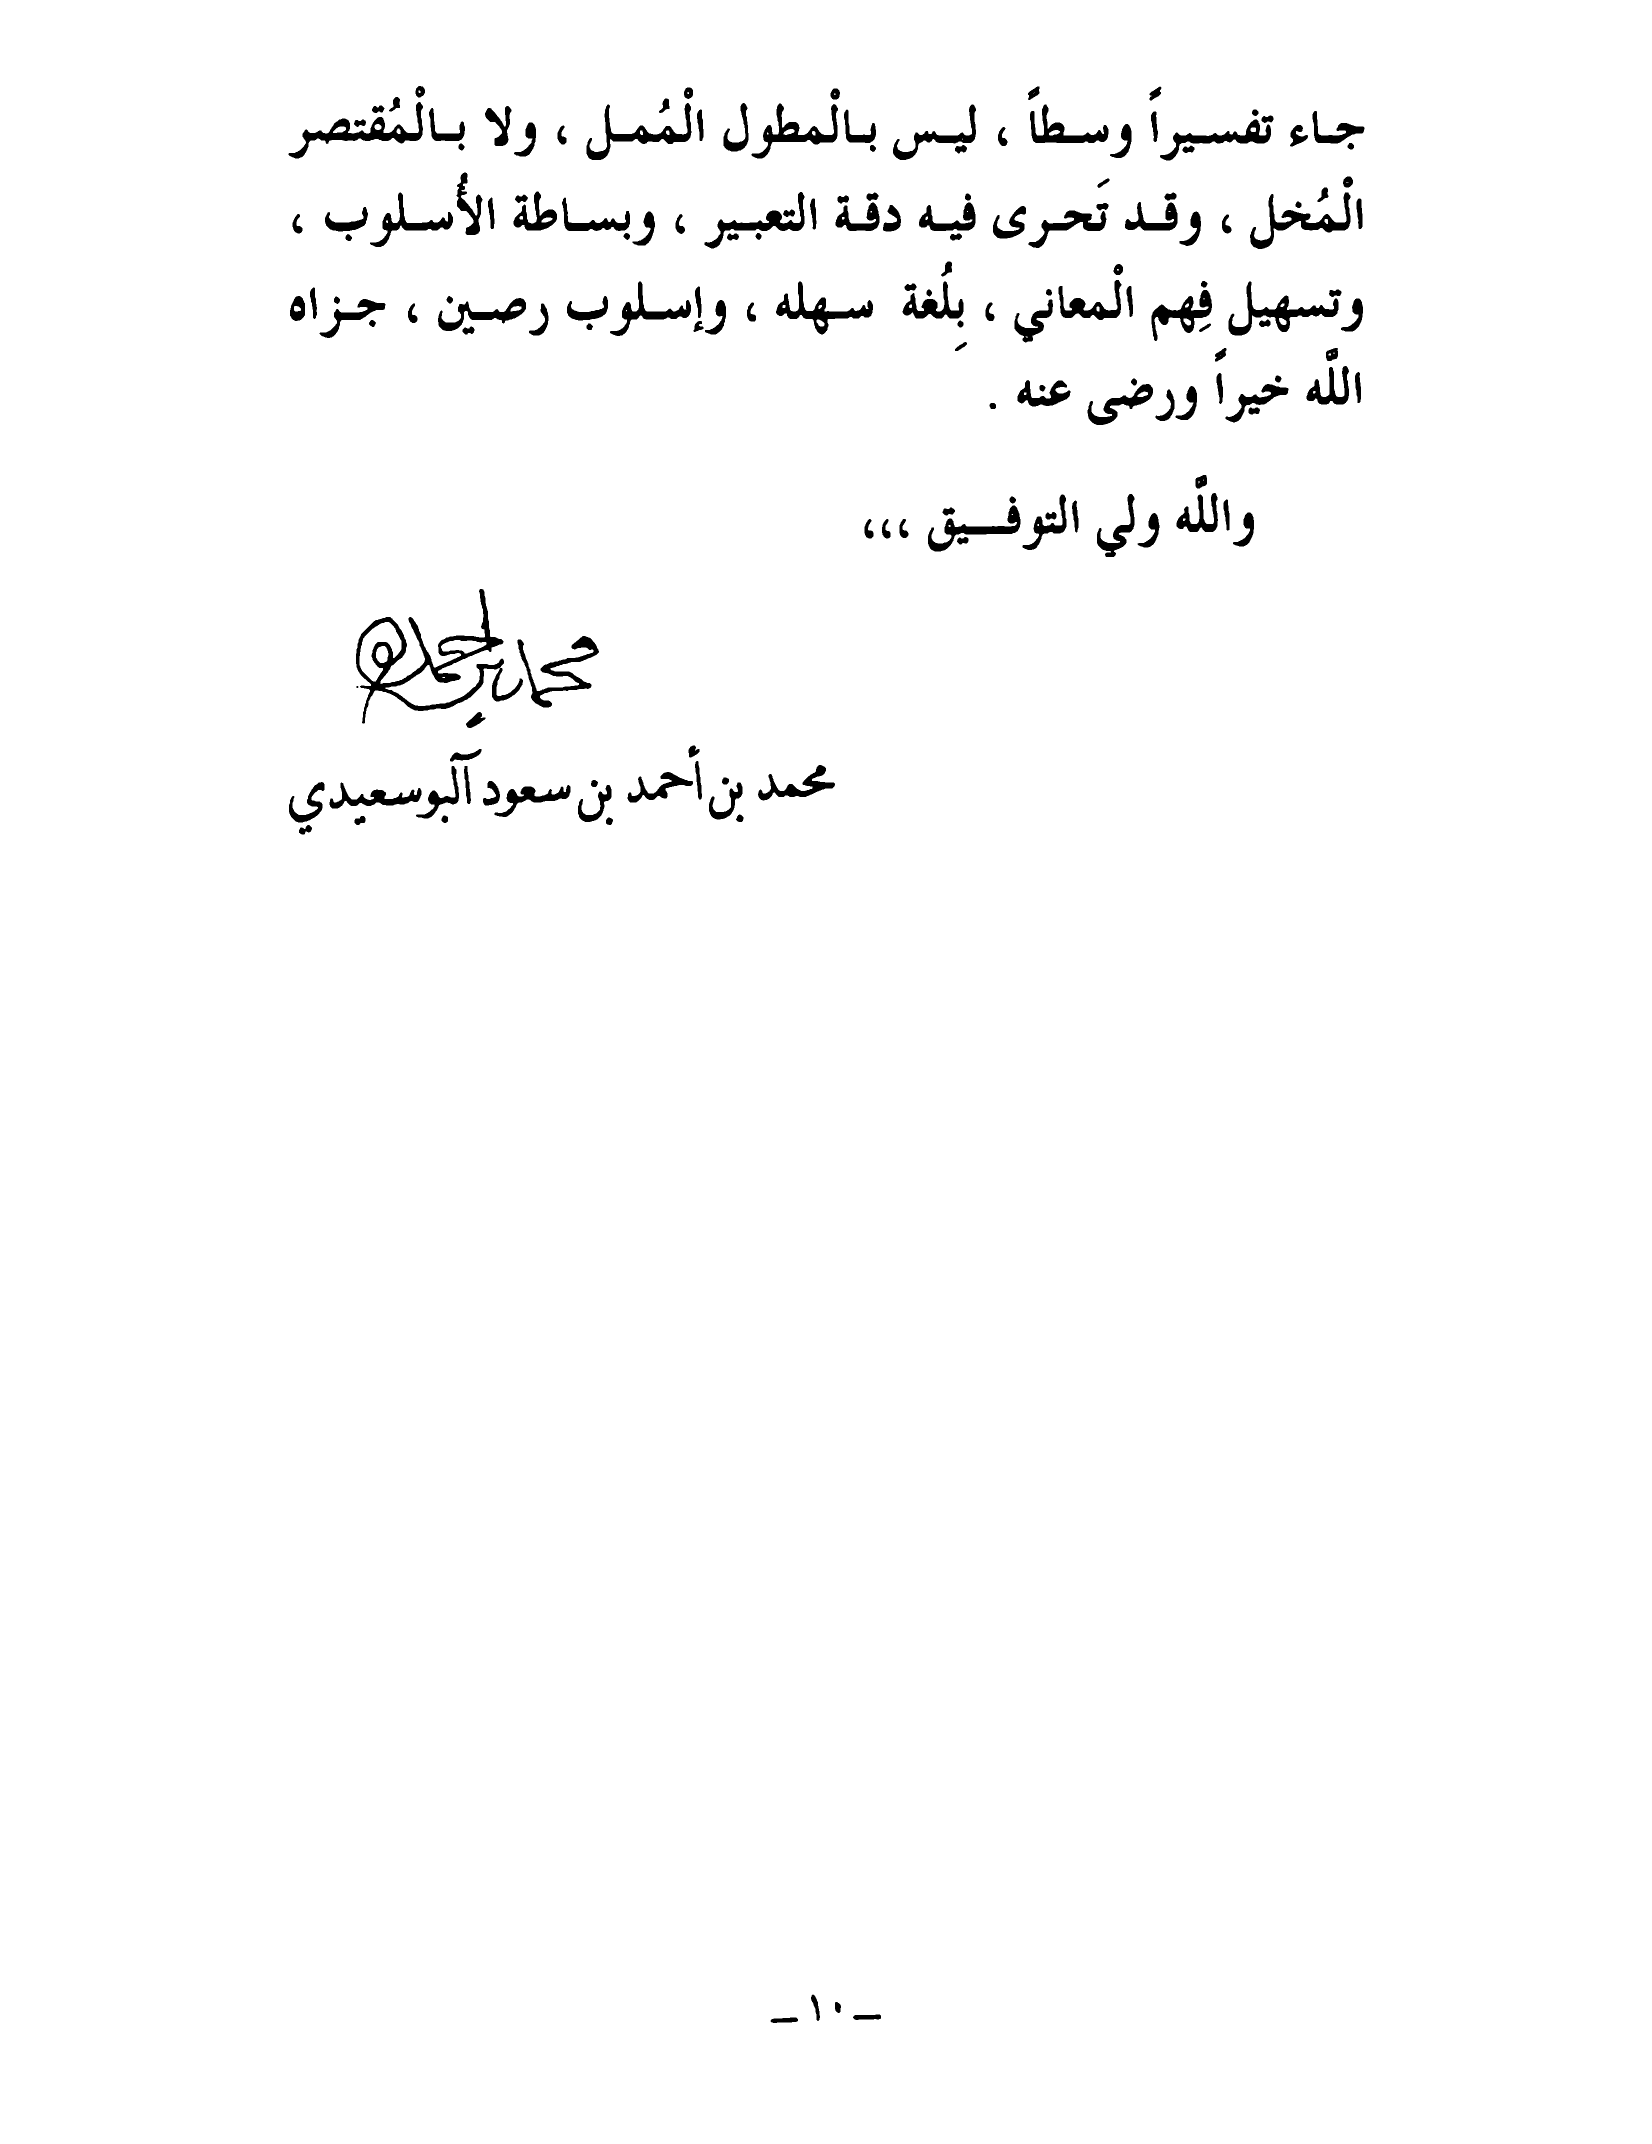 جاء تفسيراً وسطاً ، ليس بالْمطول الْمُمل ، ولا بالْمُقتصر
الْمُخل ، وقد تَحرى فيه دقة التعبير ، وبساطة الأُسلوب ،
وتسهيل فِهم الْمعاني ، بِلُغة سهله ، وإسلوب رصين ، جزاه
اللَّه خيراً ورضى عنه .
واللَّه ولي التوفيق ،،،
محمد بن احمد
محمد بن أحمد بن سعود آلبوسعيدي
ـ ١٠ ـ